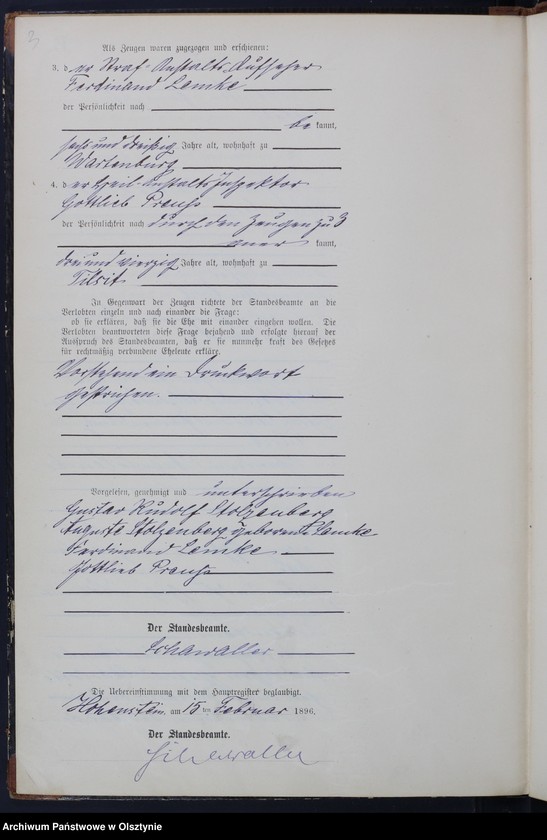 Als Zeugen waren zugezogen und erschienen:
3. der Straf-Anstalts-Aufseher
Ferdinand Lemke
der Persönlichkeit nach
be kannt,
sechs und dreißig Jahre alt, wohnhaft zu
Wartenburg
4. der Anstalts Inspektor
Gottlieb Preuß
der Persönlichkeit nach durch den Zeugen zu 3
aner kannt,
drei und vierzig Jahre alt, wohnhaft zu
Tilsit
In Gegenwart der Zeugen richtete der Standesbeamte an die
Verlobten einzeln und nach einander die Frage:
ob sie erklären, daß sie die Ehe mit einander eingehen wollen. Die
Verlobten beantworteten diese Frage bejahend und erfolgte hierauf der
Ausspruch des Standesbeamten, daß er sie nunmehr kraft des Gesetzes
für rechtmäßig verbundene Eheleute erkläre.
Vorstehend ein Druckwort
gestrichen.
Vorgelesen, genehmigt und unterschrieben
Gustav Rudolf Stolzenberg
Auguste Stolzenberg geborene Lemke
Ferdinand Lemke
Gottlieb Preuß
Der Standesbeamte.
Schawaller
Die Uebereinstimmung mit dem Hauptregister beglaubigt.
Hohenstein am 15 ten Februar 1896.
Der Standesbeamte.
Schawaller
Archiwum Państwowe w Olsztynie